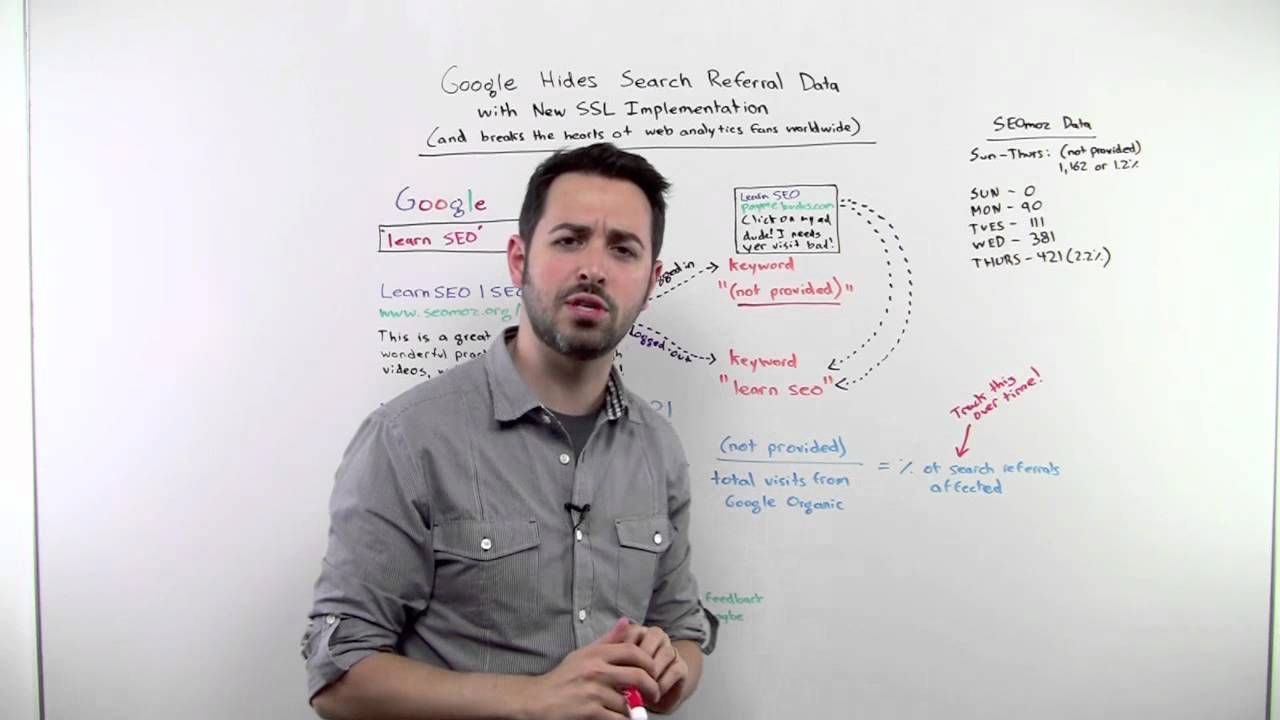 Google Hides Search Referral Data
with New SSL Implementation
(and breaks the hearts of web analytics fans worldwide)
Google
"learn SEO"
Learn SEO | SEO
www.seomoz.org/
This is a great
wonderful
videos,
Logged out
Learn SEO
Click on my ad
dude! I needs
yer visit bad!
keyword
"(not provided)"
keyword
"learn seo"
(not provided)
total visits from
Google Organic
= % of search referrals
affected
Track this
over time!
SEOmoz Data
Sun-Thurs: (not provided)
1,162 or 1.2%
SUN - 0
MON - 90
TUES - 111
WED - 381
THURS - 421 (2.2%)
feedback